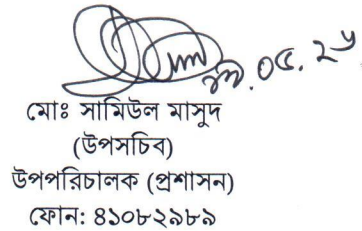 মোঃ সামিউল মাসুদ
(উপসচিব)
উপপরিচালক (প্রশাসন)
ফোন: ৪১০৮২৯৮৯